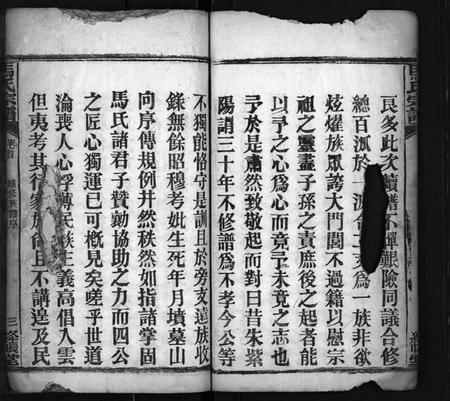 良多此次續譜不憚艱險同議合修
總百派於一源合二支為一族非欲
炫燿族眾誇大門閭不過藉以慰宗
祖之靈盡子孫之責庶後之起者能
以予之心為心而竟予未竟之志也
予於是肅然致敬起而對曰昔朱紫
陽謂三十年不修譜為不孝今公等
不獨能恪守是訓且於旁支遠族收
錄無餘昭穆考妣生死年月墳墓山
向序傳規例井然秩然如指諸掌固
馬氏諸君子贊勷協助之力而四公
之匠心獨運已可槪見矣嗟乎世道
淪喪人心浮薄民族主義高倡入雲
但夷考其行家族倫且不講遑及民
馬氏宗譜
卷首
續修族譜序
三